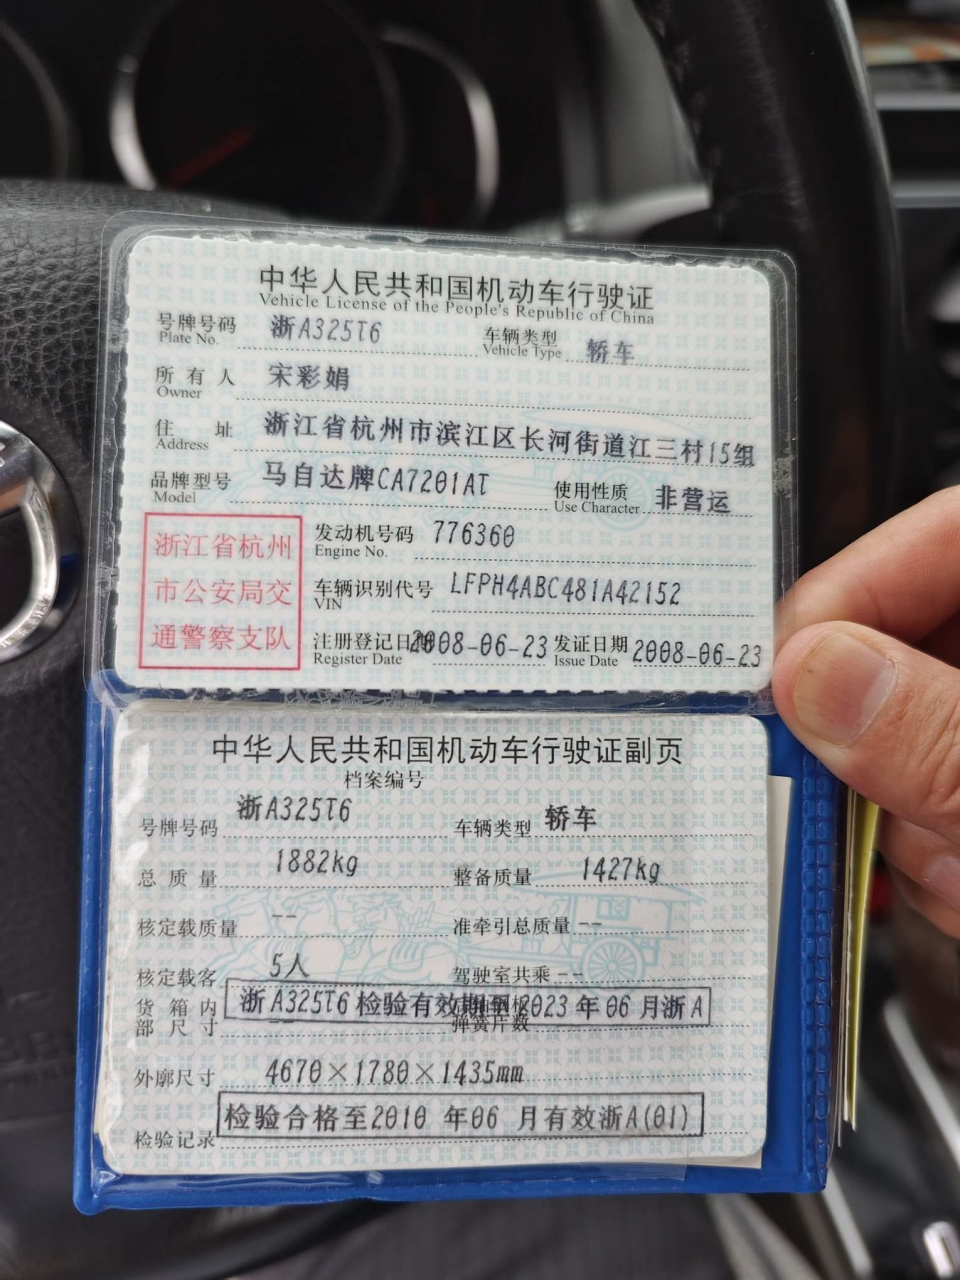 中华人民共和国机动车行驶证
Vehicle License of the People's Republic of China
号牌号码 浙A325T6 车辆类型 轿车
Plate No. Vehicle Type
所有人 宋彩娟
Owner
住址 浙江省杭州市滨江区长河街道江三村15组
Address
品牌型号 马自达牌CA7201AT 使用性质 非营运
Model Use Character
浙江省杭州
市公安局交
通警察支队
发动机号码 776360
Engine No.
车辆识别代号 LFPH4ABC481A42152
VIN
注册登记日期 2008-06-23 发证日期 2008-06-23
Register Date Issue Date
中华人民共和国机动车行驶证副页
档案编号
号牌号码 浙A325T6 车辆类型 轿车
总质量 1882kg 整备质量 1427kg
核定载质量 -- 准牵引总质量 --
核定载客 5人 驾驶室共乘 --
货箱内 浙A325T6 检验有效期至 2023 年 06 月浙A
部尺寸 -- 弹簧片数
外廓尺寸 4670×1780×1435mm
检验合格至2010 年06 月有效浙A(01)
检验记录